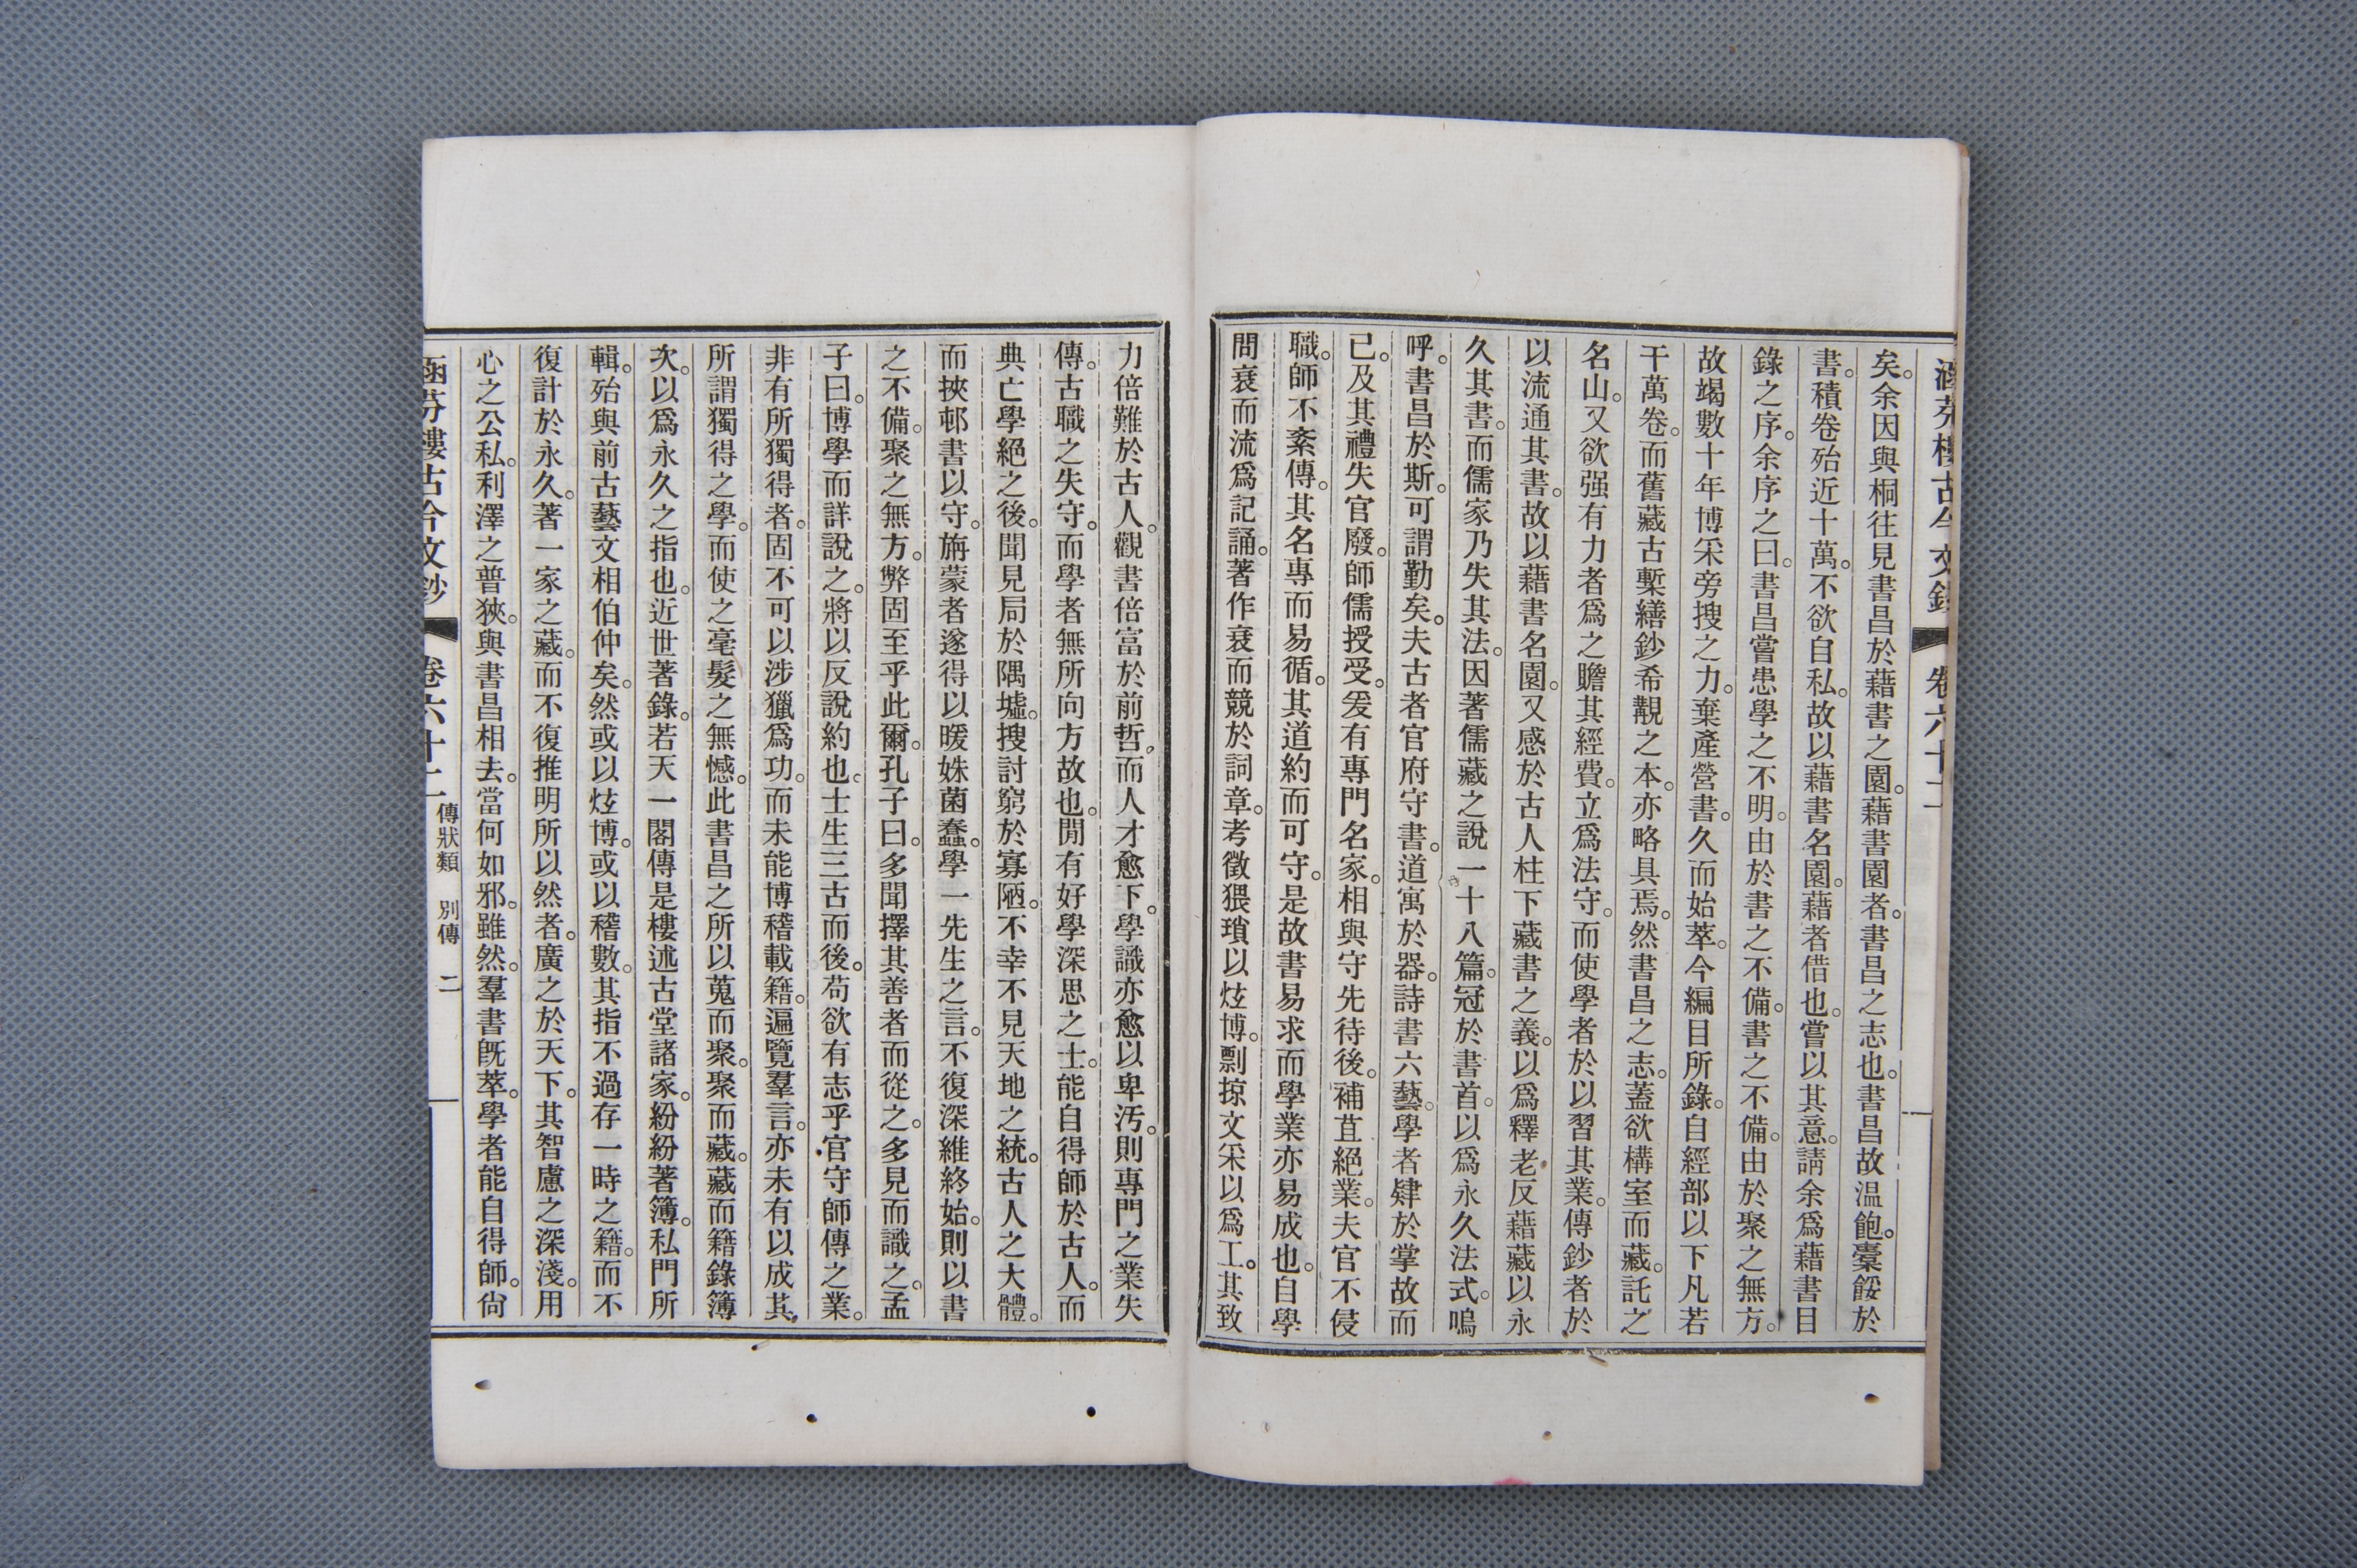 涵芬樓古今文鈔 卷六十二
矣。余因與桐往見書昌於藉書之園。藉書園者。書昌之志也。書昌故温飽。橐餒於
書。積卷殆近十萬。不欲自私。故以藉書名園。藉者借也。嘗以其意。請余爲藉書目
錄之序。余序之曰。書昌嘗患學之不明。由於書之不備。書之不備。由於聚之無方。
故竭數十年博采旁搜之力。棄產營書。久而始萃。今編目所錄。自經部以下凡若
干萬卷。而舊藏古槧繕鈔希覯之本。亦略具焉。然書昌之志。蓋欲構室而藏。託之
名山。又欲强有力者爲之贍其經費。立爲法守。而使學者於以習其業。傳鈔者於
以流通其書。故以藉書名園。又感於古人柱下藏書之義。以爲釋老反藉藏以永
久其書。而儒家乃失其法。因著儒藏之說一十八篇。冠於書首。以爲永久法式。嗚
呼。書昌於斯。可謂勤矣。夫古者官府守書。道寓於器。詩書六藝。學者肄於掌故而
已。及其禮失官廢。師儒授受。爰有專門名家。相與守先待後。補苴絕業。夫官不侵
職。師不紊傳。其名專而易循。其道約而可守。是故書易求而學業亦易成也。自學
問衰而流爲記誦。著作衰而競於詞章。考徵猥瑣以炫博。剽掠文采以爲工。其致
力倍難於古人。觀書倍富於前哲。而人才愈下。學識亦愈以卑汚。則專門之業失
傳。古職之失守。而學者無所向方故也。閒有好學深思之士。能自得師於古人。而
典亡學絕之後。聞見局於隅墟。搜討窮於寡陋。不幸不見天地之統。古人之大體。
而挾邨書以守。旃蒙者遂得以暖姝菌蠢。學一先生之言。不復深維終始。則以書
之不備。聚之無方。弊固至乎此爾。孔子曰。多聞擇其善者而從之。多見而識之。孟
子曰。博學而詳說之。將以反說約也。士生三古而後。苟欲有志乎官守師傳之業。
非有所獨得者。固不可以涉獵爲功。而未能博稽載籍。遍覽羣言。亦未有以成其
所謂獨得之學。而使之毫髮之無憾。此書昌之所以蒐而聚。聚而藏。藏而籍錄簿
次。以爲永久之指也。近世著錄。若天一閣傳是樓述古堂諸家。紛紛著簿。私門所
輯。殆與前古藝文相伯仲矣。然或以炫博。或以稽數。其指不過存一時之籍。而不
復計於永久。著一家之藏。而不復推明所以然者。廣之於天下。其智慮之深淺。用
心之公私。利澤之普狹。與書昌相去。當何如邪。雖然。羣書旣萃。學者能自得師。尙
涵芬樓古今文鈔 卷六十二 傳狀類 別傳 二